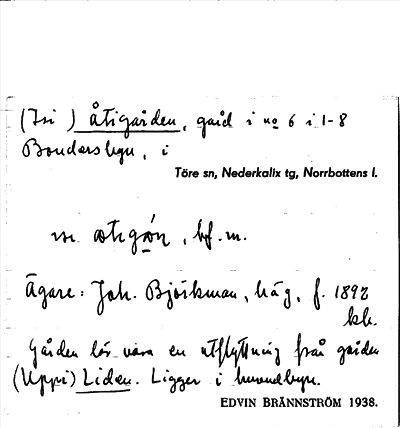 (Isi ) Åtigården, gård i no 6 i 1-8
Bondersbyn, i
Töre sn, Nederkalix tg, Norrbottens l.
bf. m.
Ägare: Joh. Björkman, häg, f. 1892
kb.
Gården lär vara en utflyttning från gården
(Uppi) Liden. Ligger i huvudbyn.
EDVIN BRÄNNSTRÖM 1938.